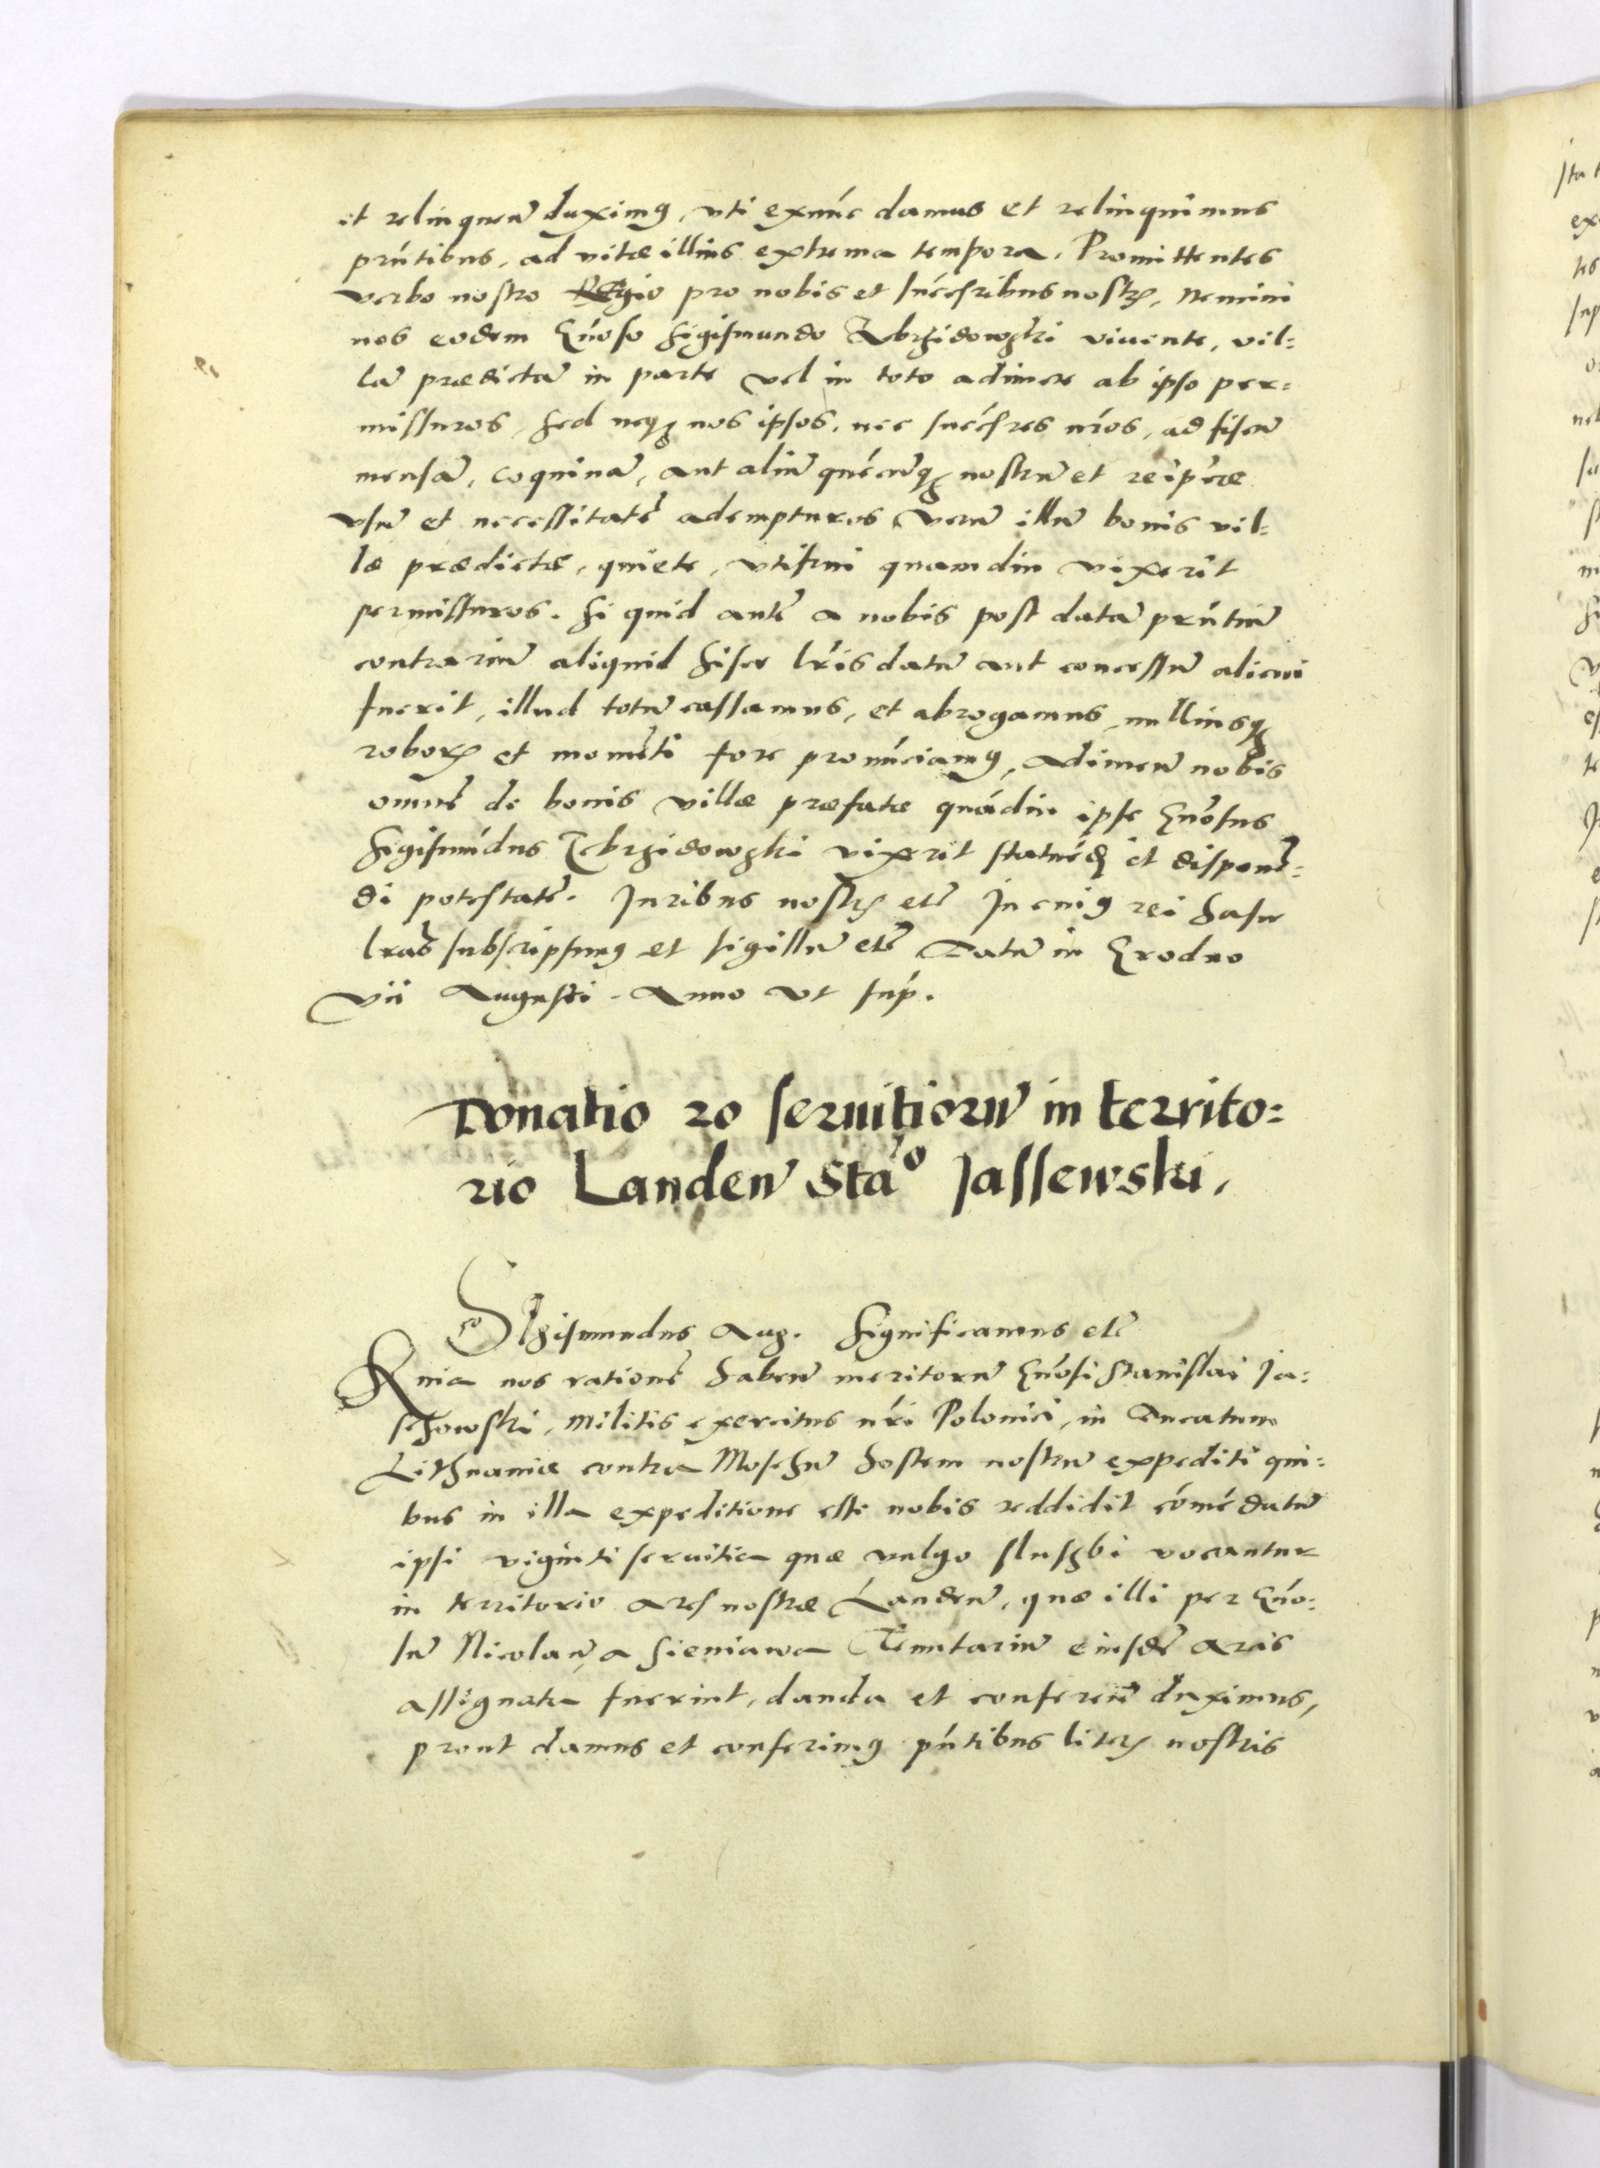 et relinquen̄ duximꝰ, vti exnūc damus et relinquimus
prn̄tibus, ad vitae illius extrema tempora. Promittentes
verbo nostro Regio pro nobis et succes̄ribus nostrꝭ, nemini
nos eodem Gn̄oso Sigismundo Zebrzidowski viuente, vil=
lā praedictā in parte vel in toto adimere ab ipso per=
missuros, sed neqꝫ nos ipsos, nec succes̄res nr̄os, ad fiscū
mensā, coquinā, aut aliū quēcūqꝫ nostrū et reip̄cae
vsū et necessitatē adempturos, verū illū bonis vil=
lae praedictae, quiete, vtifrui quamdiu vixerit
permissuros. Si quid autē a nobis post datā prn̄tiū
contrariū aliquid hisce lr̄is datū aut concessū alicui
fuerit, illud totū cassamus, et abrogamus, nulliusqꝫ
roborꝭ et momēti fore pronūciamꝰ, adimen̄ nobis
omnē de bonis villae praefatae quādiu ipse Gn̄osus
Sigismūdus Zebrzidowski vixerit statuēdi et disponē=
di potestatē. Iuribus nostrꝭ etc̄ In cuiꝰ rei hasce
lr̄as subscripsimꝰ et sigillū etc̄ Datū in Grodno
vii Augusti. Anno vt sup̄.
Donatio 20 seruitiorū in territo=
rio Landen̄ Sta͞o Jassewski.
Sigismundus Aug. Significamus etc̄
Quia nos rationē haben̄ meritorū Gn̄osi Stanislai Ja=
schowski, militis exercitus nr̄i Polonici, in Ducatum
Lithuaniae contra Moschū hostem nostrū expediti qui=
bus in illa expeditione esse nobis reddidit cōmēdatū
ipsi viginti seruitia quae vulgo sluszbi vocantur
in territorio arcs nostrae Landen̄, quae illi per Gn̄o=
sū Nicolaū a Sieniawa Tenutariū eiusdē arcis
assignata fuerint, danda et conferen̄ duximus,
prout damus et conferimꝰ pn̄tibus literꝭ nostris